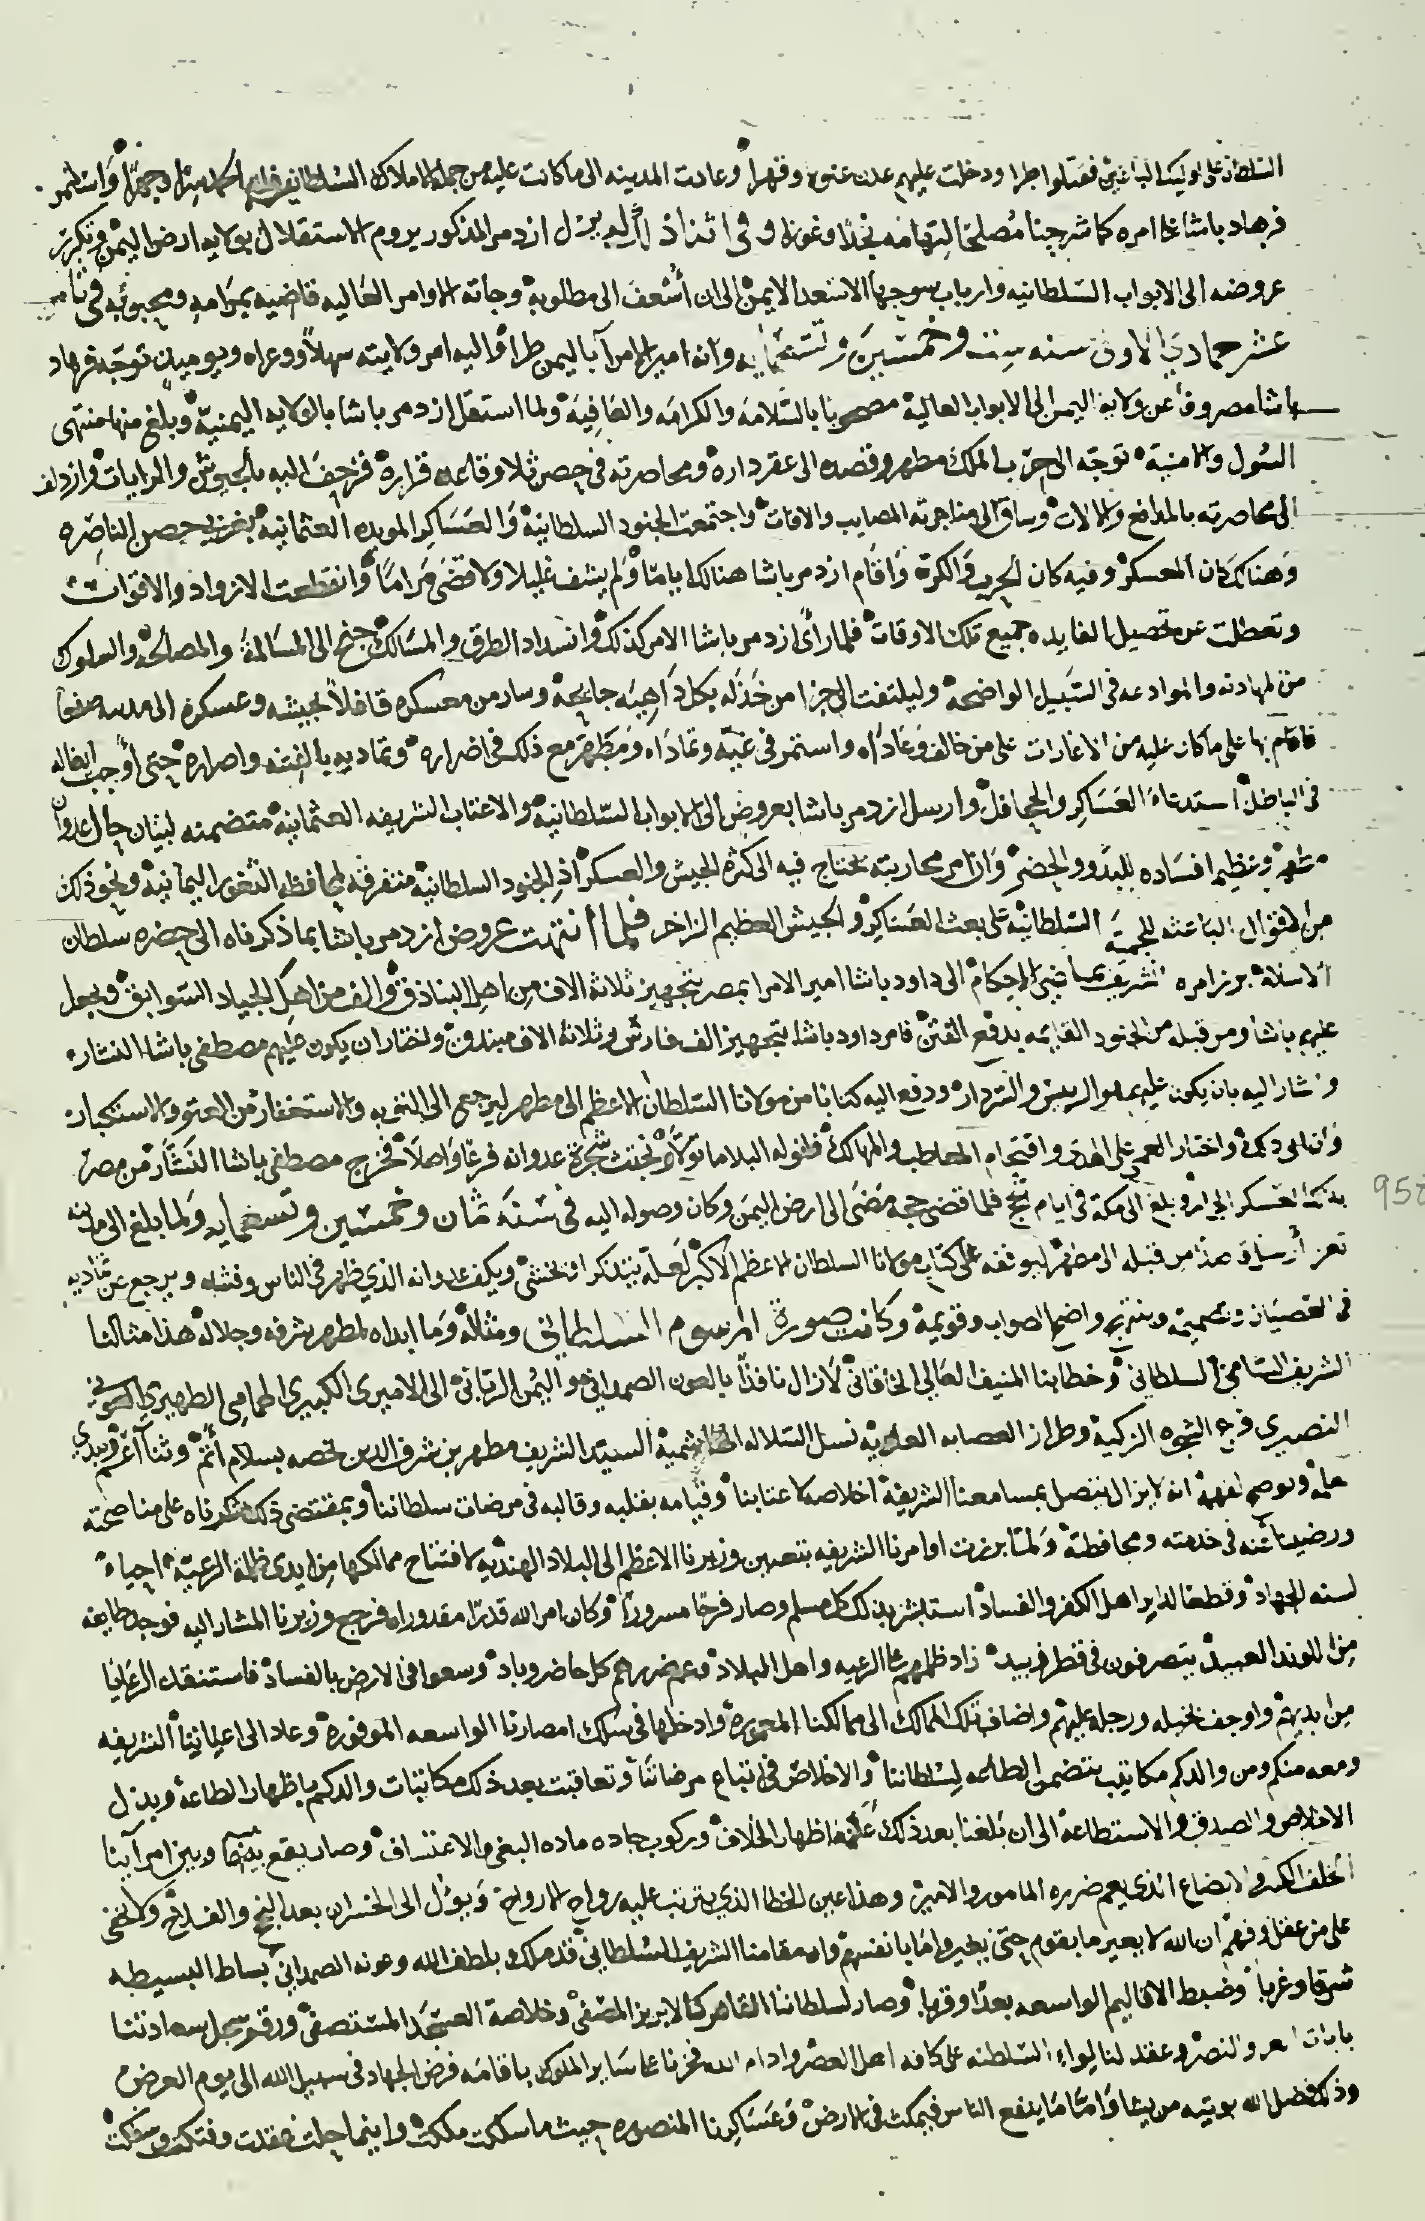 السلطان على اوليك الباغين فقتلوا طرا ودخلت عليهم عدن عنوة وقهرا وعادت المدينه الى ما كانت عليه من جملة الاملاك السلطانيه جهرا واستمر
فرهاد باشا على امره كما شرحنا مصلحا لتهامه نجدا وغورا وفى اثناء ذلك لم يزل ازدمر المذكور يروم الاستقلال بولايه ارض اليمن وتكرر
عروضه الى الابواب السلطانيه وارباب الاسعد الايمن الى ان أسعف الى مطلوبه وجاته الاوامر العاليه قاضيه بمرامه ومحبوبه فى ثامن
عشر جمادي الاولى سنه ست وخمسين وتسعمايه وانه امير الامرآ باليمن طرا واليه امر ولايته سهلا ووعرا ويوميذ توجه فرهاد
باشا مصروفا عن ولاية اليمن الى الابواب العالية مصحوبا بالسلامه والكرامه والعافيه ولما استقل ازدمر باشا بالولايه اليمنية وبلغ منها منتهى
السول والامنية توجه الى حرب الملك مطهر وقصده الى عقر داره ومحاصرته في حصن ثلا وقاعدة قراره فزحف اليه بالجيوش والرايات وازدلف
الى محاصرته بالمدافع والالات وساق الى مناجرته المصايب والافات واجتمعت الجنود السلطانية والعساكر المويده العثمانية بغربي حصن الناصره
وهنالك كان المعسكر وفيه كان الحرب والكرة واقام ازدمر باشا هنالك اياما ولم يشف غليلا ولا قضى مراما وانقطعت الازواد والاقوات
وتعطلت عن تحصيل الفايده جميع تلك الاوقات فلما رأى ازدمر باشا الامر كذلك وانسداد الطرق والمسالك جنح الى المسالمة والمصالحة والسلوك
من المهادنه والموادعه في السبيل الواضحة وليلتفت الى جزا من خذله بكل داهيه جايحة وسار من معسكره قافلا بجيشه وعسكره الى مدينه صنعا
فاقام بها على ما كان عليه من الاغارات على من خالف وعاداه واستمر في غيه وتماداه ومطهر مع ذلك في اضراره وتماديه بالفتنه واصراره حتى أوجب ايغاله
في الباطل استدعاء العساكر والجحافل وارسل ازدمر باشا بعروض الى الابواب السلطانية والاعتاب الشريفه العثمانية متضمنه لبيان حال عدوان
مطهر وعظيم افساده للبدو والحضر وان امر محاربته يحتاج فيه الى كثرة الجيش والعسكر اذ الجنود السلطانيه متفرقه لمحافظه الثغور اليمانيه ونحو ذلك
من الاقوال الباعثه للهمة السلطانية على بعث العساكر والجيش العظيم الزاخر فلما انتهت عروض ازدمر باشا بما ذكرناه الى حضره سلطان
الاسلام برز امره الشريف بماضي الاحكام الى داود باشا امير الامرا بمصر بتجهيز ثلاثة الاف من اهل البنادق والف من اهل الجياد السوابق ويجعل
عليهم باشا ومن قبله من الجنود القايمه بدفع الفتن فامر داود باشا بتجهيز الف فارس وثلاثة الاف مبندق واختار ان يكون عليهم مصطفى باشا النشار
واشار اليه بان يكون عليهم هو الريس والسردار ودفع اليه كتابا من مولانا السلطان الاعظم الى مطهر ليرجع الى التوبه والاستغفار من العتو والاستكبار
وان ابى ذلك واختار العمى على الهدى واقتحام المعاطب والمهالك فخرج مصطفى باشا النشار من مصر
بذلك العسكر الجرار وبلغ الى مكة في ايام الحج فلما قضى حجه مضى الى ارض اليمن وكان وصوله اليه فى سنة ثمان وخمسين وتسعمايه ولما بلغ الى مدينه
تعز أرسل قاصدا من قبله الى مطهر ليوقفه على كتاب مولانا السلطان الاعظم الاكبر لعله يتذكر او يخشى ويكف عدوانه الذي ظهر في الناس وفشا ويرجع عن تماديه
فى العصيان وتصميمه وينتهج واضح الصواب وقويمه وكانت صورة المرسوم السلطانى ومثاله وما ابداه لمطهر بشرفه وجلاله هذا مثالنا
الشريف السامي السلطاني وخطابنا المنيف العالي الخاقاني لا زال نافذا بالعون الصمداني واليمن الرباني الى الاميري الكبيري الهمامي الظهيري العوني
النصيري فرع الشجره الزكية وطراز العصابه العلويه نسل السلاله الهاشمية السيد الشريف مطهر بن شرف الدين نخصه بسلام أتم وثنآ أعم ونبدي
علمه ونوضح لفهمه انه لا يزال يتصل بمسامعنا الشريفة اخلاصه لاعتابنا وقيامه بقلبه وقالبه في مرضات سلطاننا وبمقتضى ذلك شكرناه على مناصحته
ورضينا عنه في خدمته ومحافظته ولما برزت اوامرنا الشريفه بتعيين وزيرنا الاعظم الى البلاد الهنديه لافتتاح ممالكها من ايدي ظلمة الرعيه احياء
لسنه الجهاد وقطعا لدابر اهل الكفر والفساد استبشر بذلك كل مسلم وصار فرحا مسرورا وكان امر الله قدرا مقدورا فرجع وزيرنا المشار اليه فوجد طايفه
من اللوند العبيد يتصرفون فى قطر زبيد زاد ظلمهم على الرعيه واهل البلاد وعم ضررهم كل حاضر وباد وسعوا في الارض بالفساد فاستنقذ الرعايا
من ايديهم واوجف بخيله ورجله عليهم واضاف تلك الممالك الى ممالكنا المعموره وادخلها في سلك امصارنا الواسعه الموفورة وعاد الى اعتابنا الشريفه
ومعه منكم ومن والدكم مكاتيب تتضمن الطاعه لسلطاننا والاخلاص فى اتباع مرضاتنا وتعاقبت بعد ذلك مكاتبات والدكم باظهار الطاعه وبذل
الاخلاص والصدق والاستطاعه الى ان بلغنا بعد ذلك عنكما اظهار الخلاف وركوب جاده ماده البغي والاعتساف وصار يقع بينكما وبين امرآينا
الخلف الذي يعم ضرره المامور والامير وهذا عين الخطا الذي يترتب عليه رواح الارواح ويؤل الى الخسران بعد الربح والفلاح ولا يخفى
على من عقل وفهم ان الله لا يغير ما بقوم حتى يغيروا ما بانفسهم وان مقامنا الشريف السلطاني قد ملك بلطف الله وعونه الصمداني بساط البسيطه
شرقا وغربا وضبط الاقاليم الواسعه بعدا وقربا وصار لسلطاننا القاهر كالابريز المصفى وخلاصة العسجد المستصفى ورقم سجل سعادتنا
بايات العز والنصر وعقد لنا لواء السلطنه على كافه اهل العصر وادام الله فخرنا على ساير الملوك باقامه فرض الجهاد فى سبيل الله الى يوم العرض
وذلك فضل الله يوتيه من يشا واما ما ينفع الناس فيمكث في الارض وعساكرنا المنصوره حيث ما سلكت ملكت واينما حلت فتكت وسفكت